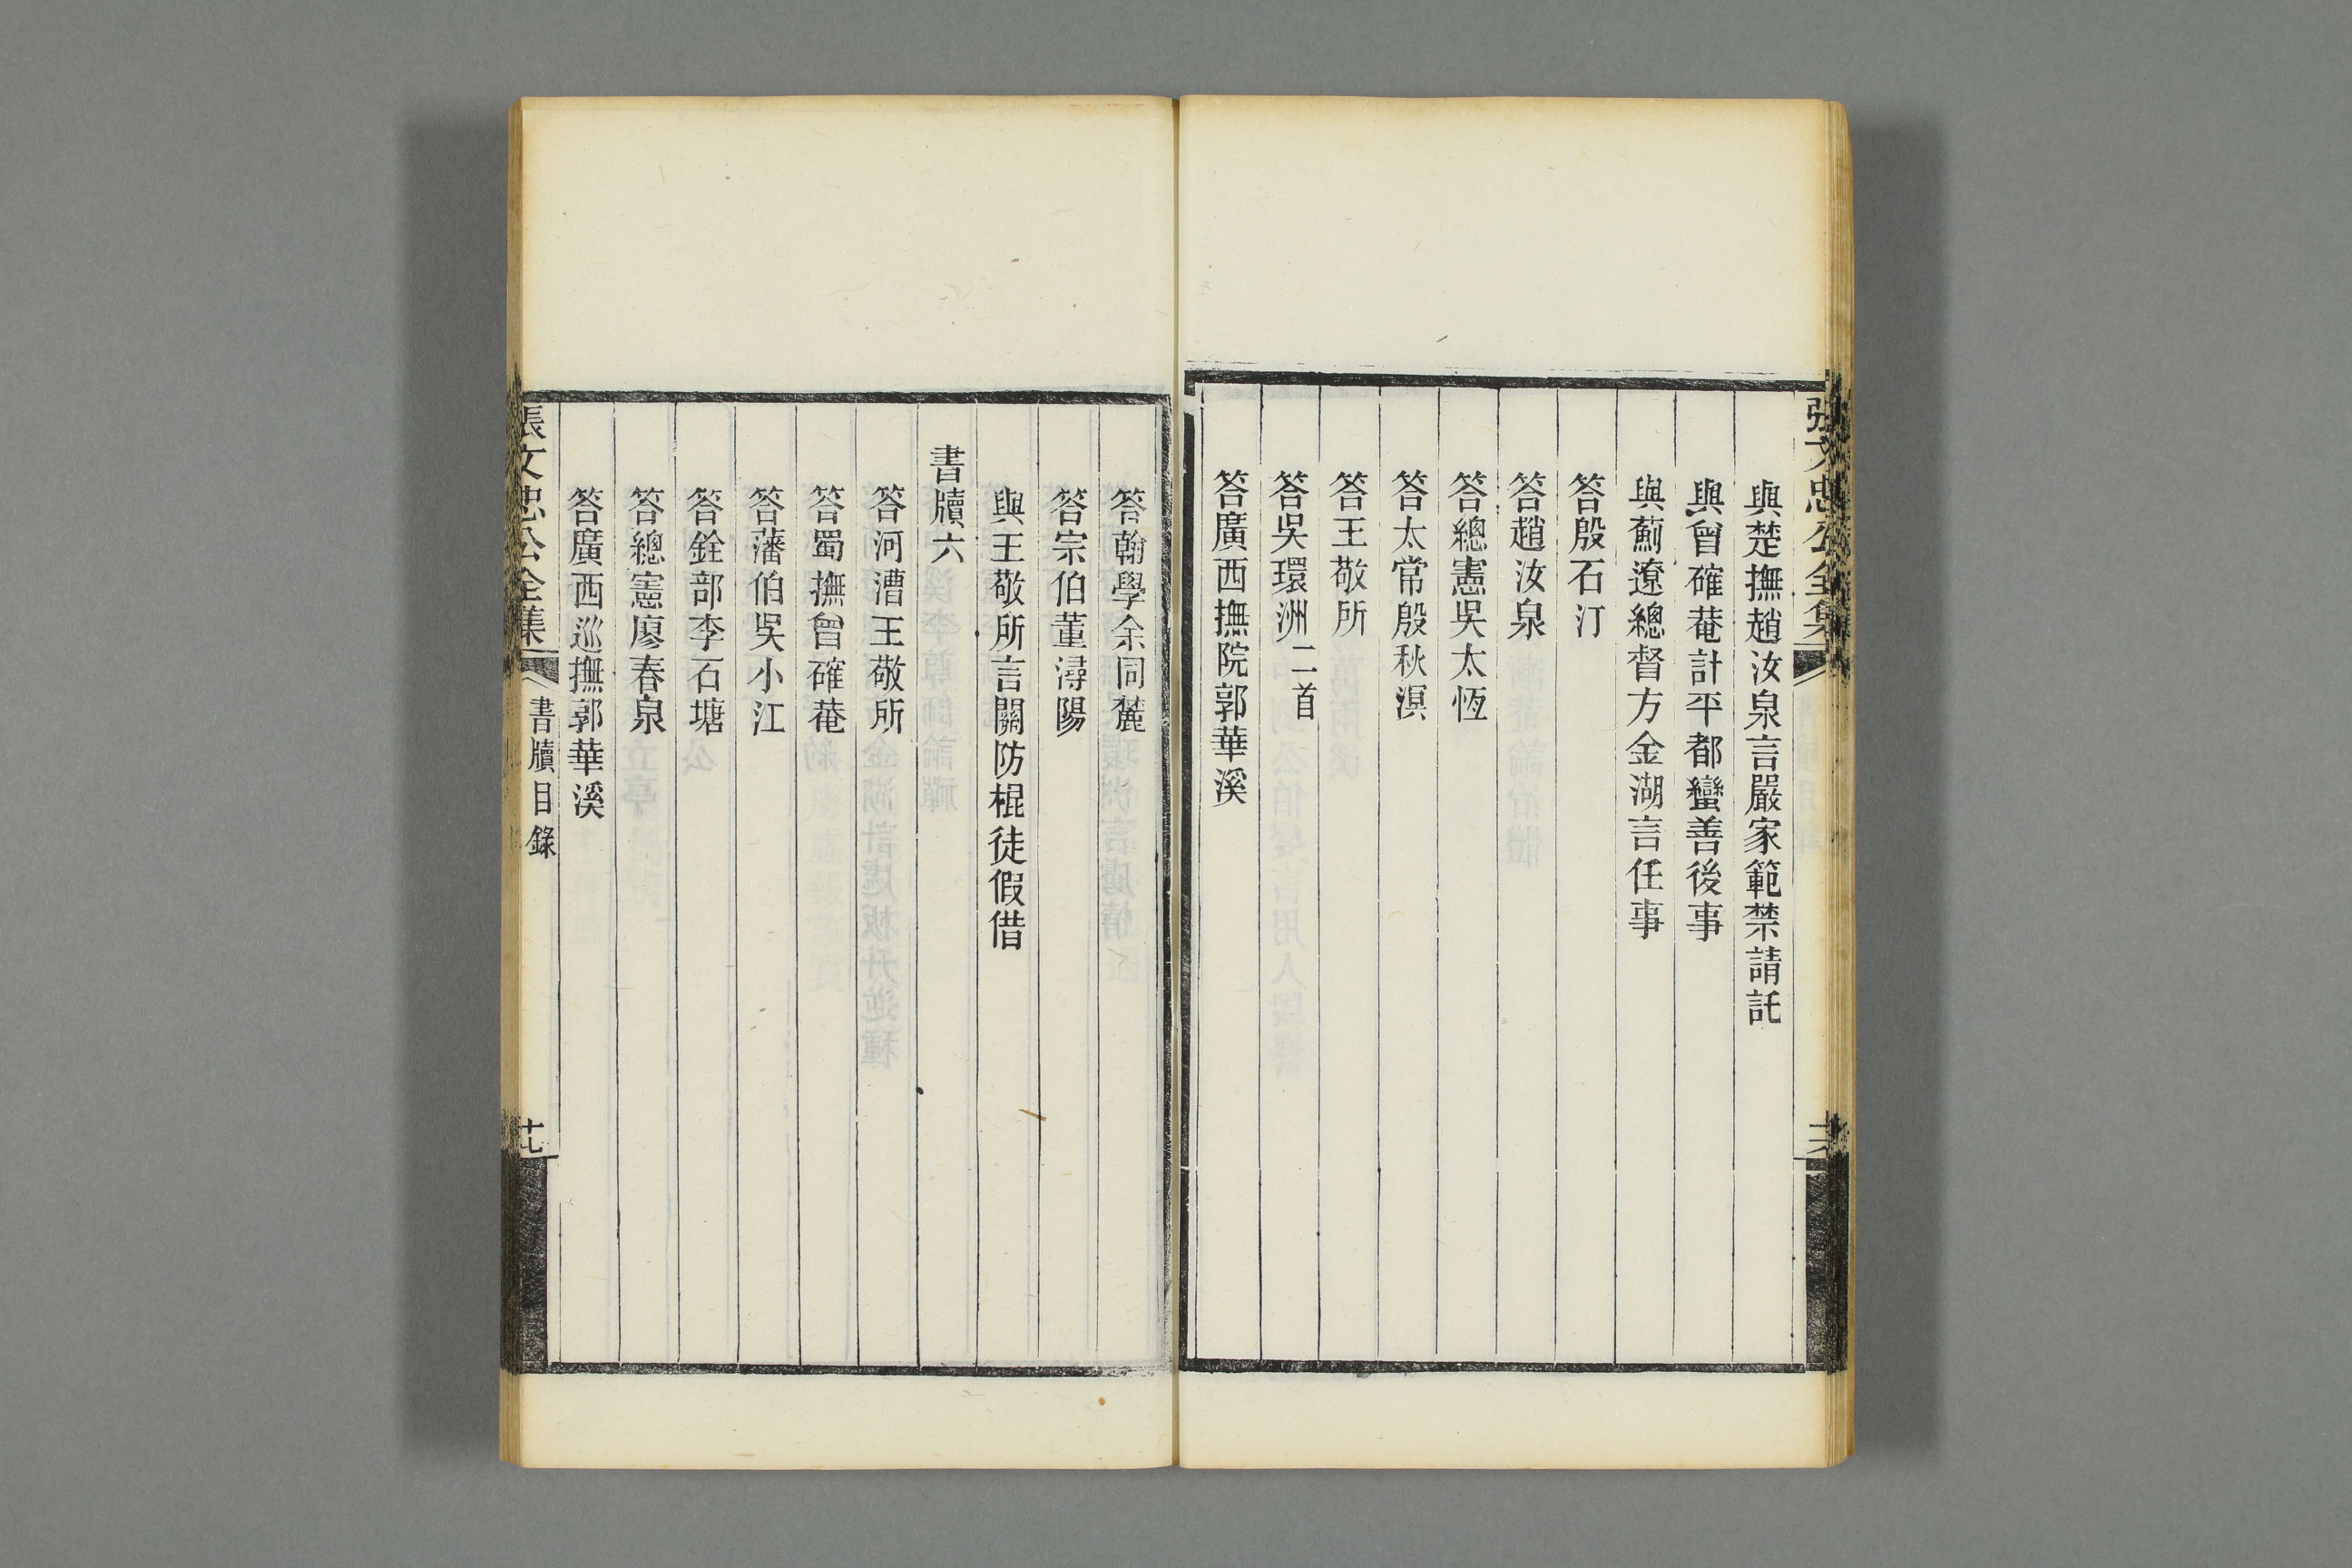 張文忠公全集
與楚撫趙汝泉言嚴家範禁請託
與曾確菴計平都蠻善後事
與薊遼總督方金湖言任事
答殷石汀
答趙汝泉
答總憲吳太恆
答太常殷秋溟
答王敬所
答吳環洲二首
答廣西撫院郭華溪
答翰學余同麓
答宗伯董潯陽
與王敬所言關防棍徒假借
書牘六
答河漕王敬所
答蜀撫曾確菴
答藩伯吳小江
答銓部李石塘
答總憲廖春泉
答廣西巡撫郭華溪
張文忠公全集 書牘目錄 十七